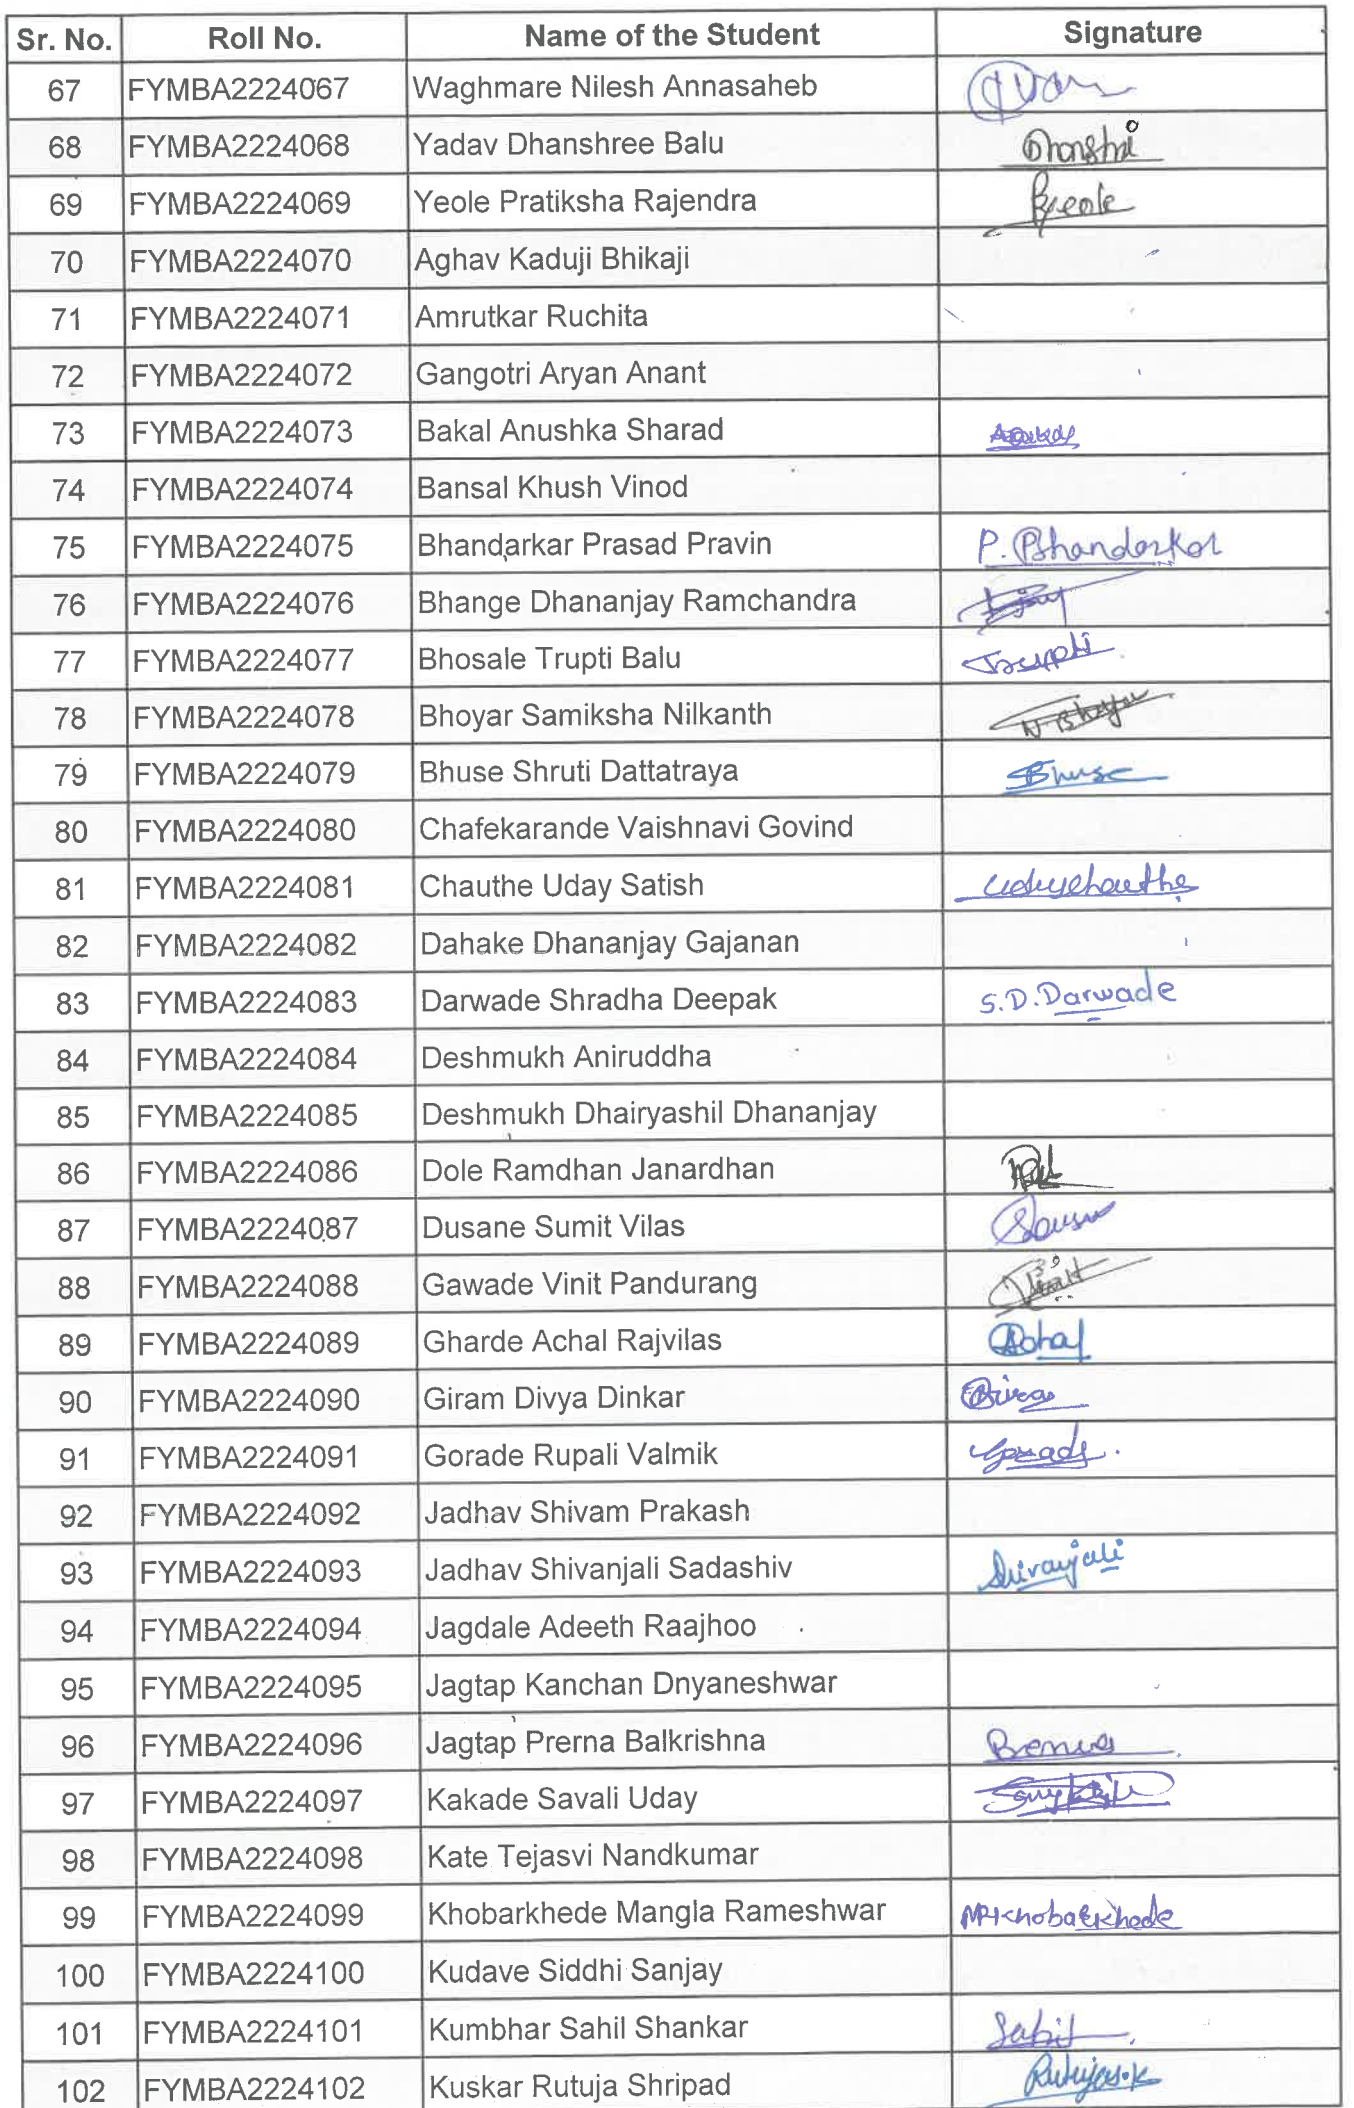 Sr. No. Roll No. Name of the Student Signature
67 FYMBA2224067 Waghmare Nilesh Annasaheb
68 FYMBA2224068 Yadav Dhanshree Balu Dhanshri
69 FYMBA2224069 Yeole Pratiksha Rajendra Pyeole
70 FYMBA2224070 Aghav Kaduji Bhikaji
71 FYMBA2224071 Amrutkar Ruchita
72 FYMBA2224072 Gangotri Aryan Anant
73 FYMBA2224073 Bakal Anushka Sharad
74 FYMBA2224074 Bansal Khush Vinod
75 FYMBA2224075 Bhandarkar Prasad Pravin P. Bhandarkar
76 FYMBA2224076 Bhange Dhananjay Ramchandra
77 FYMBA2224077 Bhosale Trupti Balu Trupti
78 FYMBA2224078 Bhoyar Samiksha Nilkanth
79 FYMBA2224079 Bhuse Shruti Dattatraya Bhuse
80 FYMBA2224080 Chafekarande Vaishnavi Govind
81 FYMBA2224081 Chauthe Uday Satish udaychauthe
82 FYMBA2224082 Dahake Dhananjay Gajanan
83 FYMBA2224083 Darwade Shradha Deepak S.D.Darwade
84 FYMBA2224084 Deshmukh Aniruddha
85 FYMBA2224085 Deshmukh Dhairyashil Dhananjay
86 FYMBA2224086 Dole Ramdhan Janardhan
87 FYMBA2224087 Dusane Sumit Vilas
88 FYMBA2224088 Gawade Vinit Pandurang Vinit
89 FYMBA2224089 Gharde Achal Rajvilas Achal
90 FYMBA2224090 Giram Divya Dinkar
91 FYMBA2224091 Gorade Rupali Valmik Gorade.
92 FYMBA2224092 Jadhav Shivam Prakash
93 FYMBA2224093 Jadhav Shivanjali Sadashiv Shivanjali
94 FYMBA2224094 Jagdale Adeeth Raajhoo
95 FYMBA2224095 Jagtap Kanchan Dnyaneshwar
96 FYMBA2224096 Jagtap Prerna Balkrishna Prerna
97 FYMBA2224097 Kakade Savali Uday
98 FYMBA2224098 Kate Tejasvi Nandkumar
99 FYMBA2224099 Khobarkhede Mangla Rameshwar MRKhobarkhede
100 FYMBA2224100 Kudave Siddhi Sanjay
101 FYMBA2224101 Kumbhar Sahil Shankar Sahil
102 FYMBA2224102 Kuskar Rutuja Shripad Rutuja.S.K